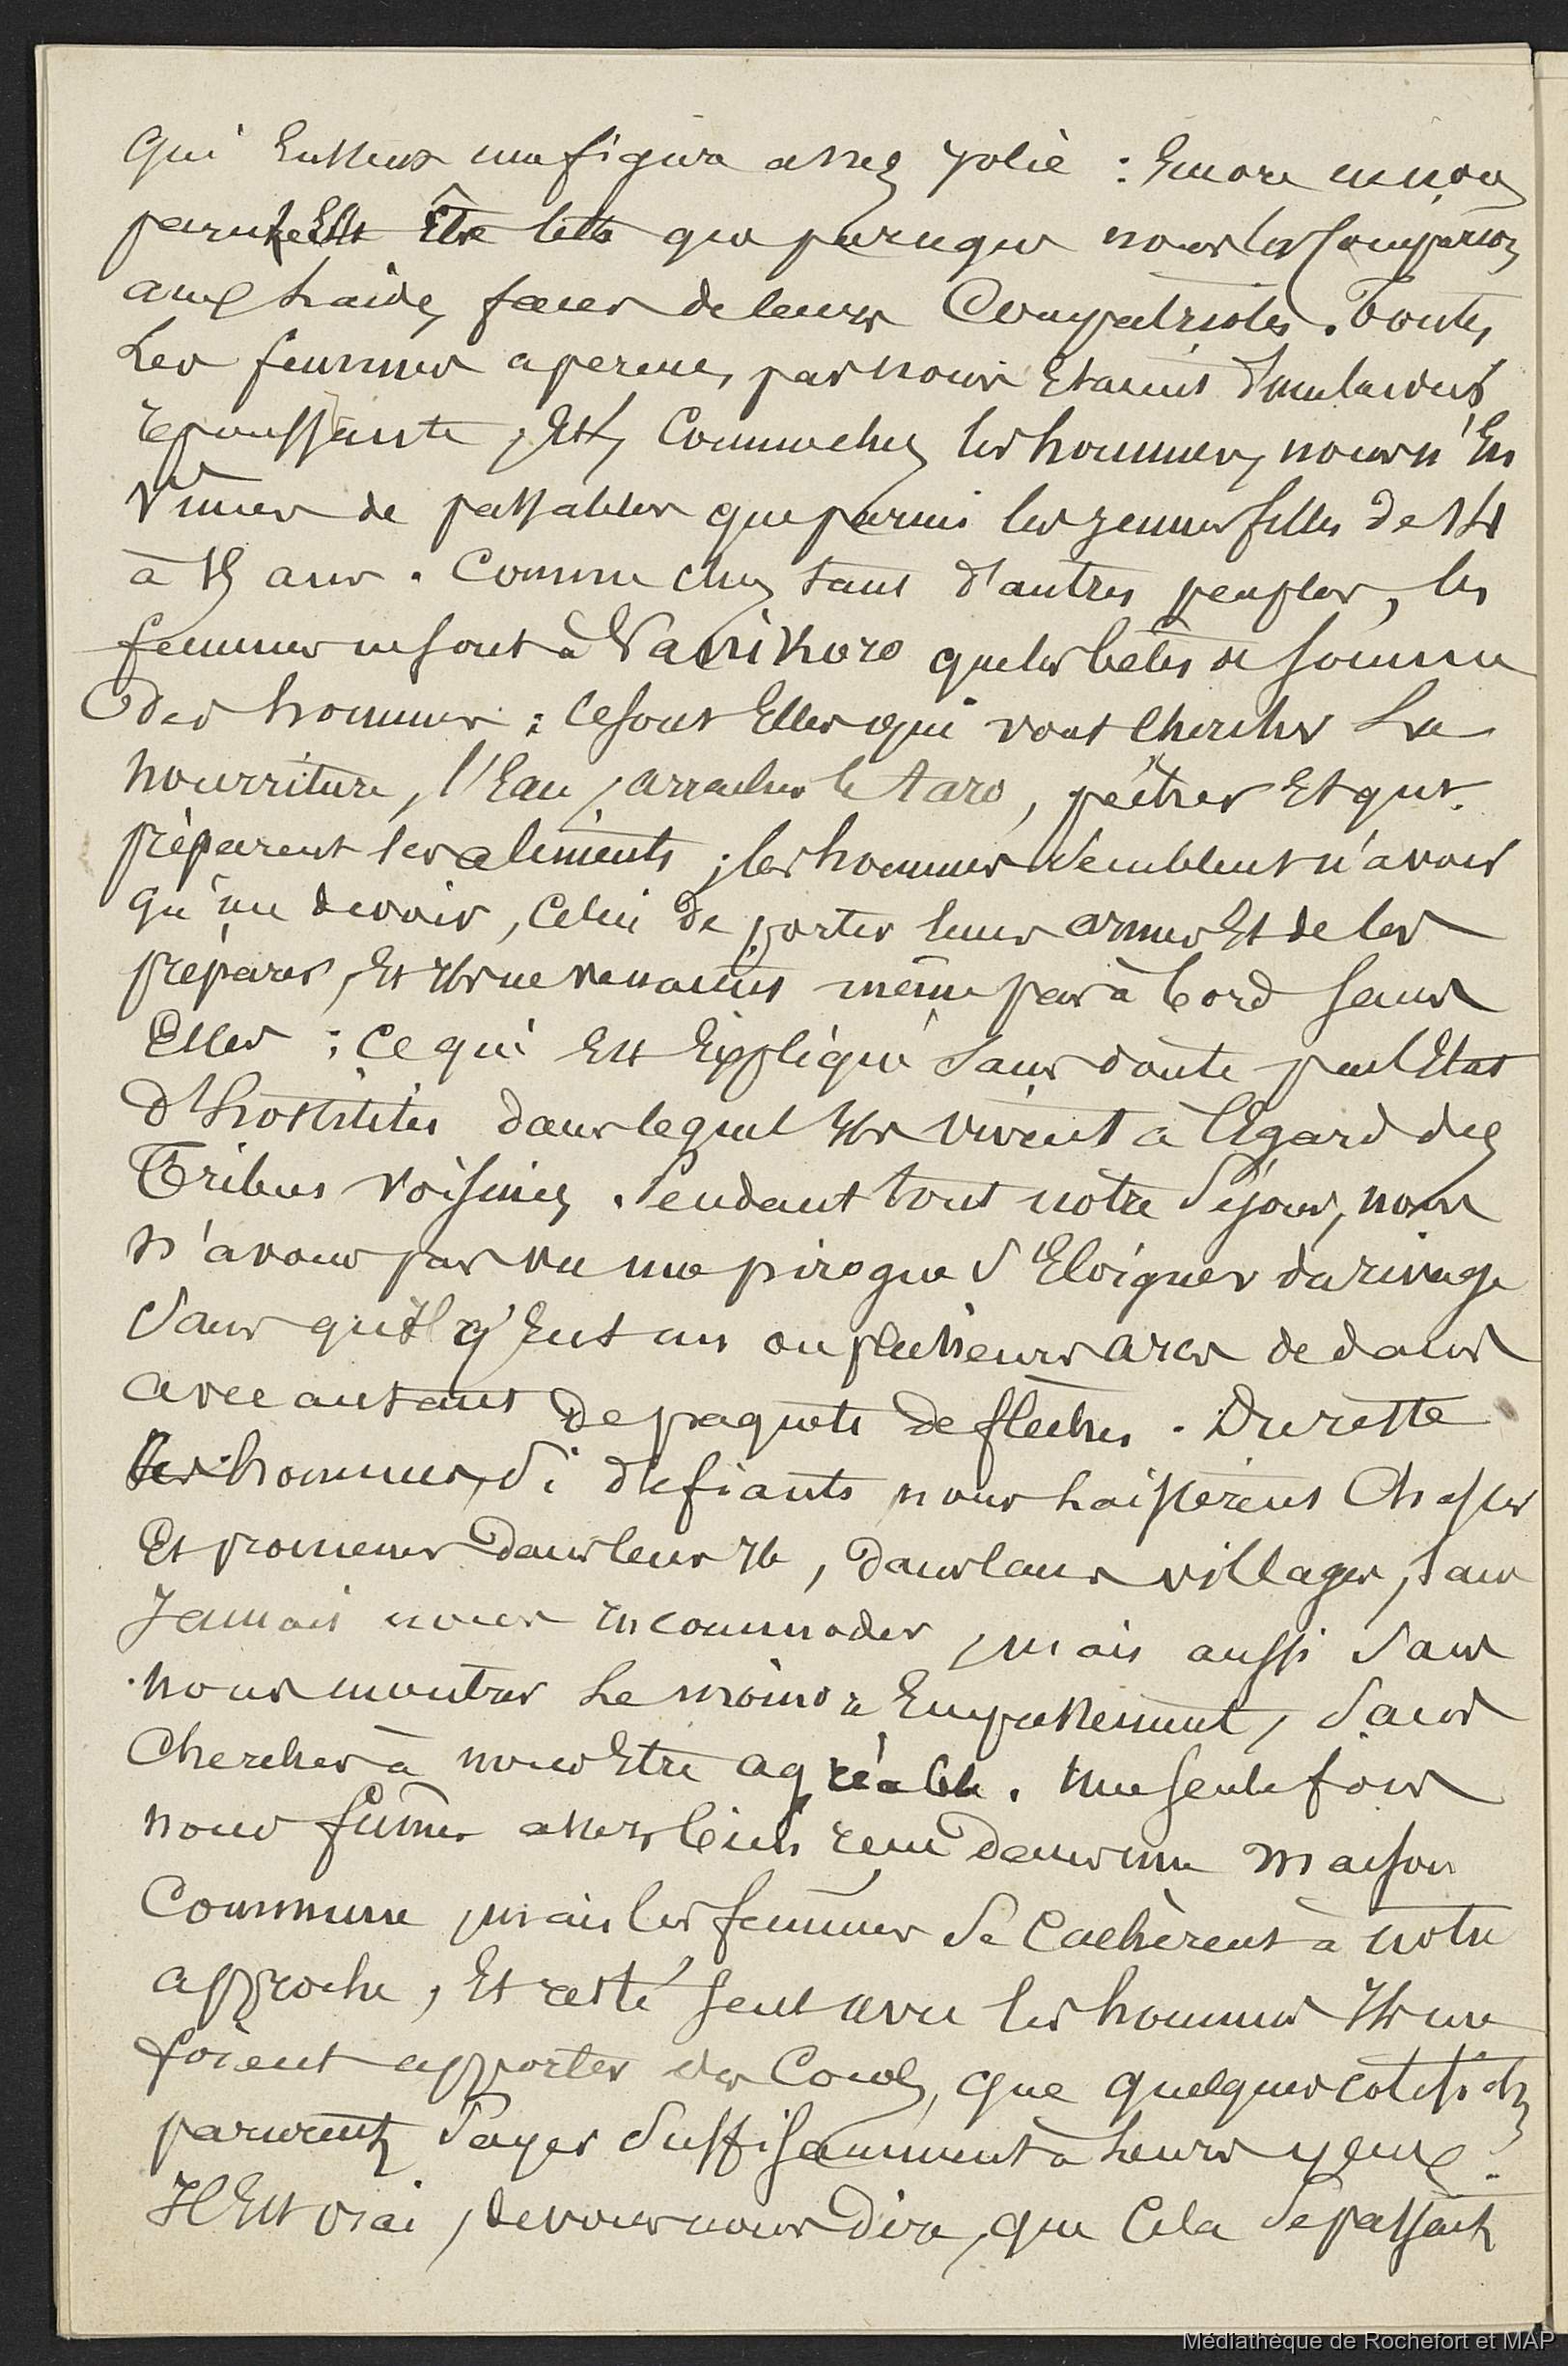 qui eussent une figure assez jolie : Encore ne nous
parurent Elle Être telle que parceque nous les Comparions
aux laides faces de leurs Compatriotes. Toutes
Les femmes aperçues par nous Etaient d'une laideur
repoussante, Et, Comme chez les hommes, nous n'En
Vîmes de passables que parmi les jeunes filles de 14
à 15 ans. Comme chez tant d'autres peuples, les
femmes ne sont à Vanikoro que les bêtes de somme
des hommes ; Ce sont Elles qui vont chercher La
nourriture, l'Eau, arracher le taro, pêcher Et qui
préparent les aliments ; les hommes semblent n'avoir
qu'un devoir, Celui de porter leurs armes Et de les
préparer, Et Ils ne venaient même pas à bord sans
Elles ; Ce qui Est Expliqué sans doute par l'Etat
d'hostilités dans lequel Ils vivent à l'Egard des
Tribus voisines. Pendant tout notre Séjour, nous
n'avons pas vu une pirogue S'Eloigner du rivage
Sans qu'Il y Eut un ou plusieurs arcs dedans
avec autant de paquets de flèches. Du reste
Les hommes, Si défiants nous laissèrent Chasser
Et promener dans leur Ile, dans leurs villages, sans
Jamais nous incommoder, mais aussi Sans
nous montrer Le moindre Empressement, Sans
Chercher à nous Etre agréable. Une seule fois
nous fûmes assez bien reçu dans une maison
Commune, mais les femmes Se Cachèrent à notre
approche, Et resté seul avec les hommes Ils me
firent apporter des Cocos, que quelques colifichets
parurent Payer Suffisamment à Leurs yeux.
Il Est vrai, devons nous Dire, que Cela Se passait
Médiathèque de Rochefort et MAP